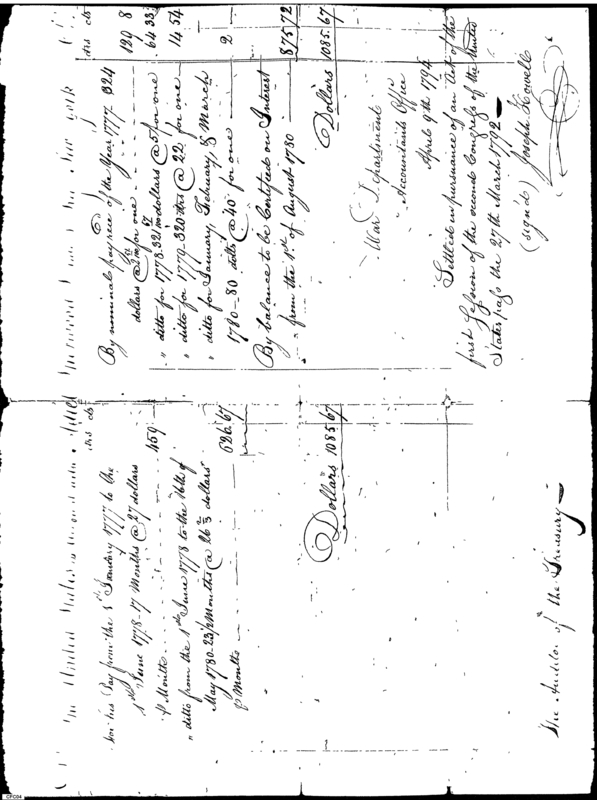 The United States
dlrs cts
for his Pay from the 1st January 1777 to the
1st June 1778-17 Months @ 27 dollars
⅌ Month 459
" ditto from the 1st June 1778 to the 16th of
May 1780-23½ Months @ 26 2/3 dollars
⅌ Month 626.67
Dollars 1085.67
The Auditor of the Treasury
New York
dlrs cts
By nominal pay rece'd of the Year 1777. 324
dollars @ for one 129 8
" ditto for 1778. 321 dollars @ 5 for one 64 33
" ditto for 1779. 320 ditto @ 22 for one 14 54
" ditto for January, February, & March
1780-80 ditto @ 40 for one 2
By balance to be Computed on Interest
from the 1st of August 1780 875 72
Dollars 1085.67
War Department
Accountants Office
April 9th 1794
Settled in pursuance of an Act of the
first Session of the second Congress of the United
States pass'd the 27th March 1792
(signed) Joseph Howell
CFC04